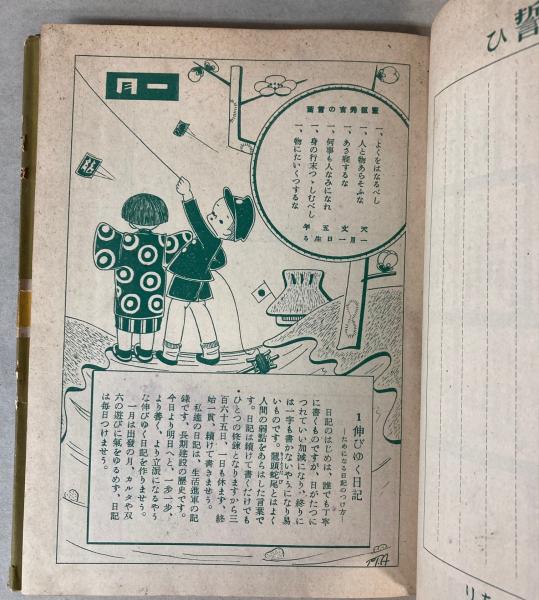 一月
豊臣秀吉の言葉
一、よくをはなるべし
一、人と物あらそふな
一、あさ寝するな
一、何事も人なみになれ
一、身の行末つゝしむべし
一、物にたいくつするな
天文五年
一月一日生る
1 伸びゆく日記
―ためになる日記のつけ方―
日記のはじめは、誰でも丁寧
に書くものですが、日がたつに
つれていい加減になり、終りに
は一字も書かないやうになり易
いものです。龍頭蛇尾とはよく
人間の弱點をあらはした言葉で
す。日記は續けて書くだけでも
ひとつの修錬となりますから三
百六十五日、一日も休まず、終
始一貫、續けて書きませう。
私達の日記は、生活進軍の記
録です、長期建設の歴史です。
今日より明日へと、一歩一歩、
より善く、より立派になるやう
な伸びゆく日記を作りませう。
一月は出發の月、カルタや双
六の遊びに氣をゆるめず、日記
は毎日つけませう。
誓ひ